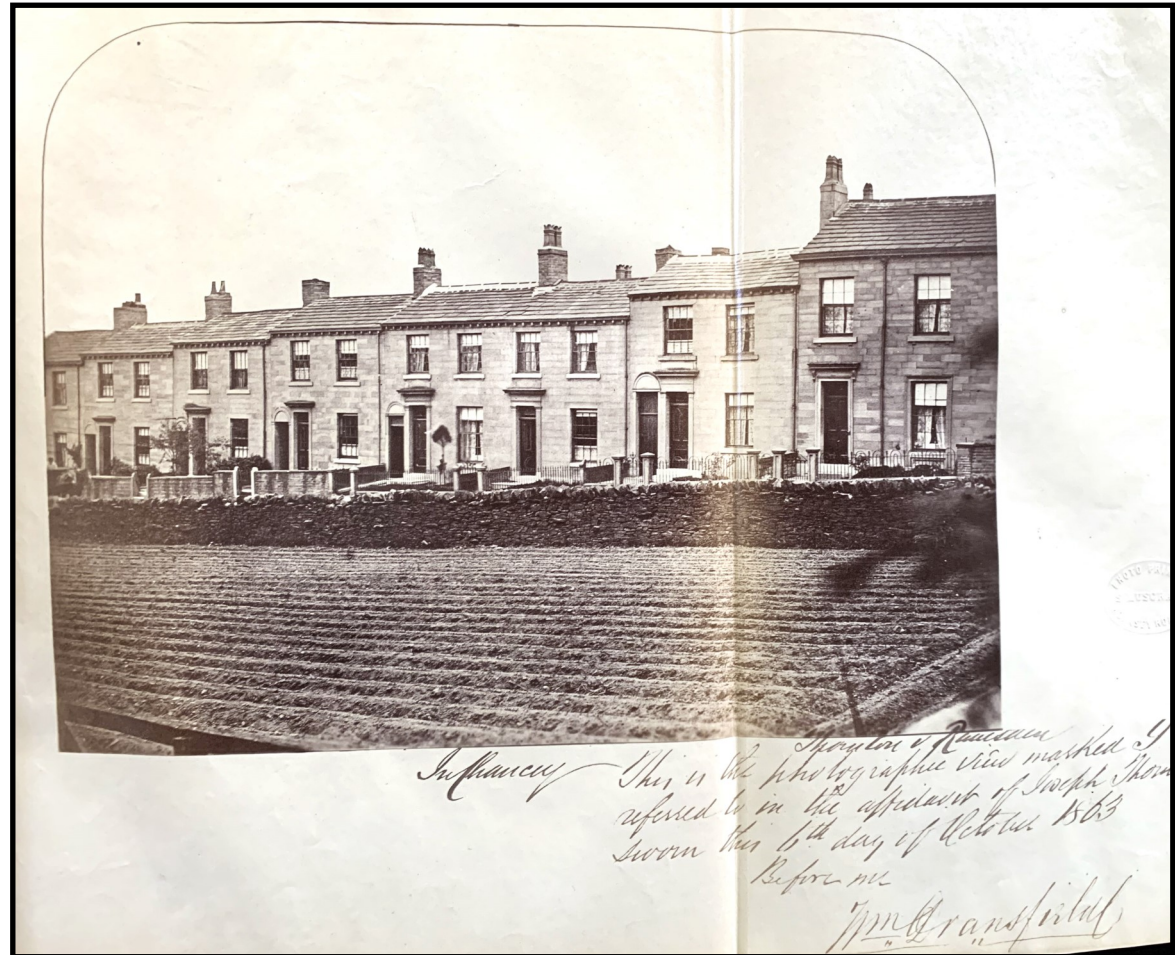 In Chancery
Thornton v Ramsden
This is the photographic view marked
referred to in the affidavit of Joseph Thorn
sworn this 6th day of October 1863
Before me
Wm